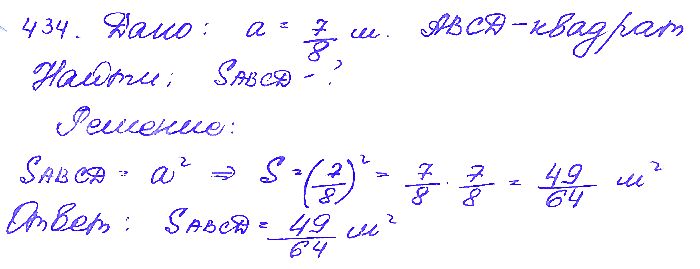 434. Дано: a = 7/8 м. ABCD-квадрат
Найти: SABCD-?
Решение:
SABCD = a² ⇒ S = (7/8)² = 7/8 · 7/8 = 49/64 м²
Ответ: SABCD = 49/64 м²